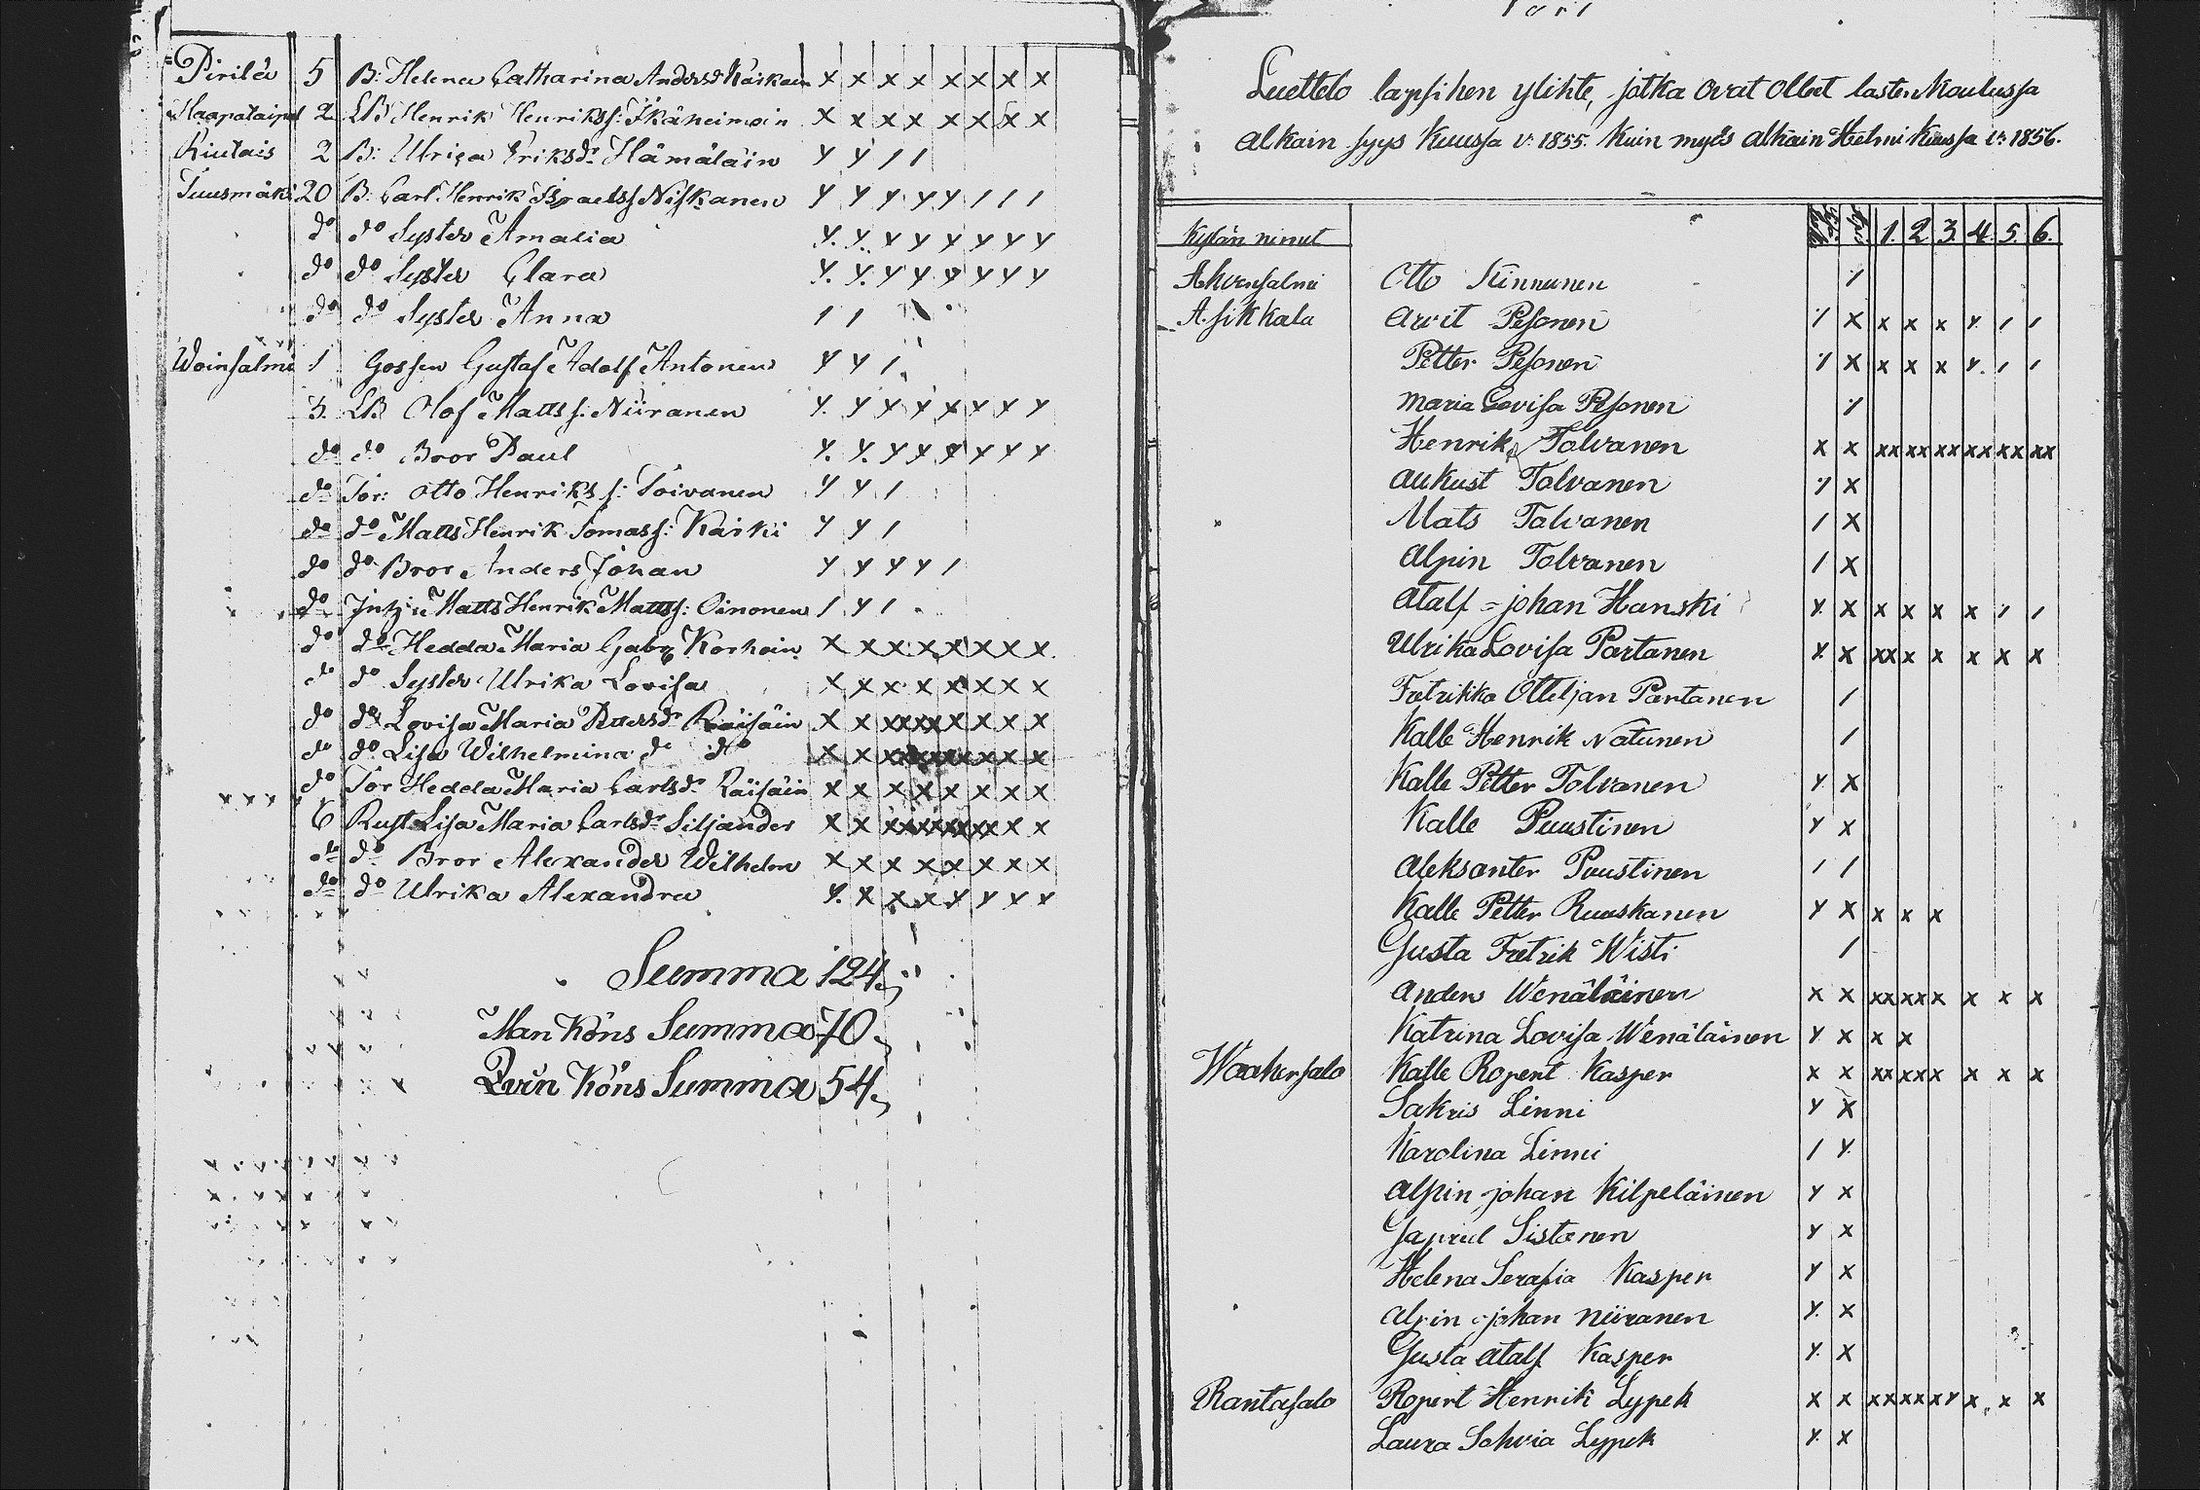 Pirilä 5 B: Helena Catharina Andersd: Käskain x x x x x x x x
Haapataipal 2 LB Henrik Henrikss: Ikäheimoin x x x x x x x x
Kiutais 2 B: Ulrica Eriksd:r Hämäläin y y / /
Tuusmäki 20 B: Carl Henrik Israelss Niskanen y y y y y / / /
d:o d:o Syster Amalia y. y. y y y y y y
d:o d:o Syster Clara y. y. y y y y y y
d:o d:o Syster Anna / /
Woinsalmi 1 Gossen Gustaf Adolf Antonen y y /
3. LB Olof Matts s: Niiranen y. y y y x y y y
d:o d:o Bror Paul y. y. y y y y y y
d:o Tor: Otto Henriks s: Toivanen y y /
d:o d:o Matts Henrik Tomass: Käiki y y /
d:o d:o Bror Anders Johan y y y y /
d:o Inhs: Matts Henrik Mattss: Oinonen / y /
d:o d:o Hedda Maria Gabr Korhoin x x x x x x x x
d:o d:o Syster Ulrika Lovisa x x x x x x x x
d:o d:o Lovisa Maria Räisäin x x xx xx x x x x
d:o d:o Lisa Wilhelmina d:o d:o
d:o Tor Hedda Maria Carlsd:r Räisäin x x x x x x x x
6 Rust Lisa Maria Carlsd:r Siljander
d:o d:o Bror Alexander Wilhelm x x x x x x x x
d:o d:o Ulrika Alexandra y. x x x y y y y
Summa 124.
Man Köns Summa 70.
Qvin Köns Summa 54.
Luettelo lapsihen ylihte, jotka ovat olleet lasten Koulussa
alkain syys Kuussa v: 1855. kuin myös alkain Helmi Kuussa v: 1856.
Kylän nimet 1. 2. 3. 4. 5. 6.
Ahvensalmi Otto Kinnunen /
Asikkala Arvit Pesonen / x x x x y. / /
Petter Pesonen / x x x x y. / /
Maria Lovisa Pesonen /
Henrik Tolvanen x x xx xx xx xx xx xx
Aukust Tolvanen / x
Mats Tolvanen / x
Alpin Tolvanen / x
Atalf = johan Hanski y. x x x x x / /
Ulrika Lovisa Partanen y. x xx x x x x x
Fretrikka Otteljan Partanen /
Kalle Henrik Natunen /
Kalle Petter Tolvanen y x
Kalle Puustinen y x
Aleksanter Puustinen / /
Kalle Petter Ruuskanen y x x x x
Gusta Fretrik Wisti /
Anders Wenäläinen x x xx xx x x x x
Katrina Lovisa Wenäläinen y x x x
Waahersalo Kalle Ropert Kasper x x xx xx x x x x
Sakris Linni y x
Karolina Linni / y.
Alpin johan Kilpeläinen y x
Gapriel Sistonen y x
Helena Serafia Kasper y x
Alpin = johan Niiranen y. x
Gusta Atalf Kasper y. x
Rantasalo Ropert Henrik Lypek x x xx xx x y x x x
Laura Sohvia Lypek y. x